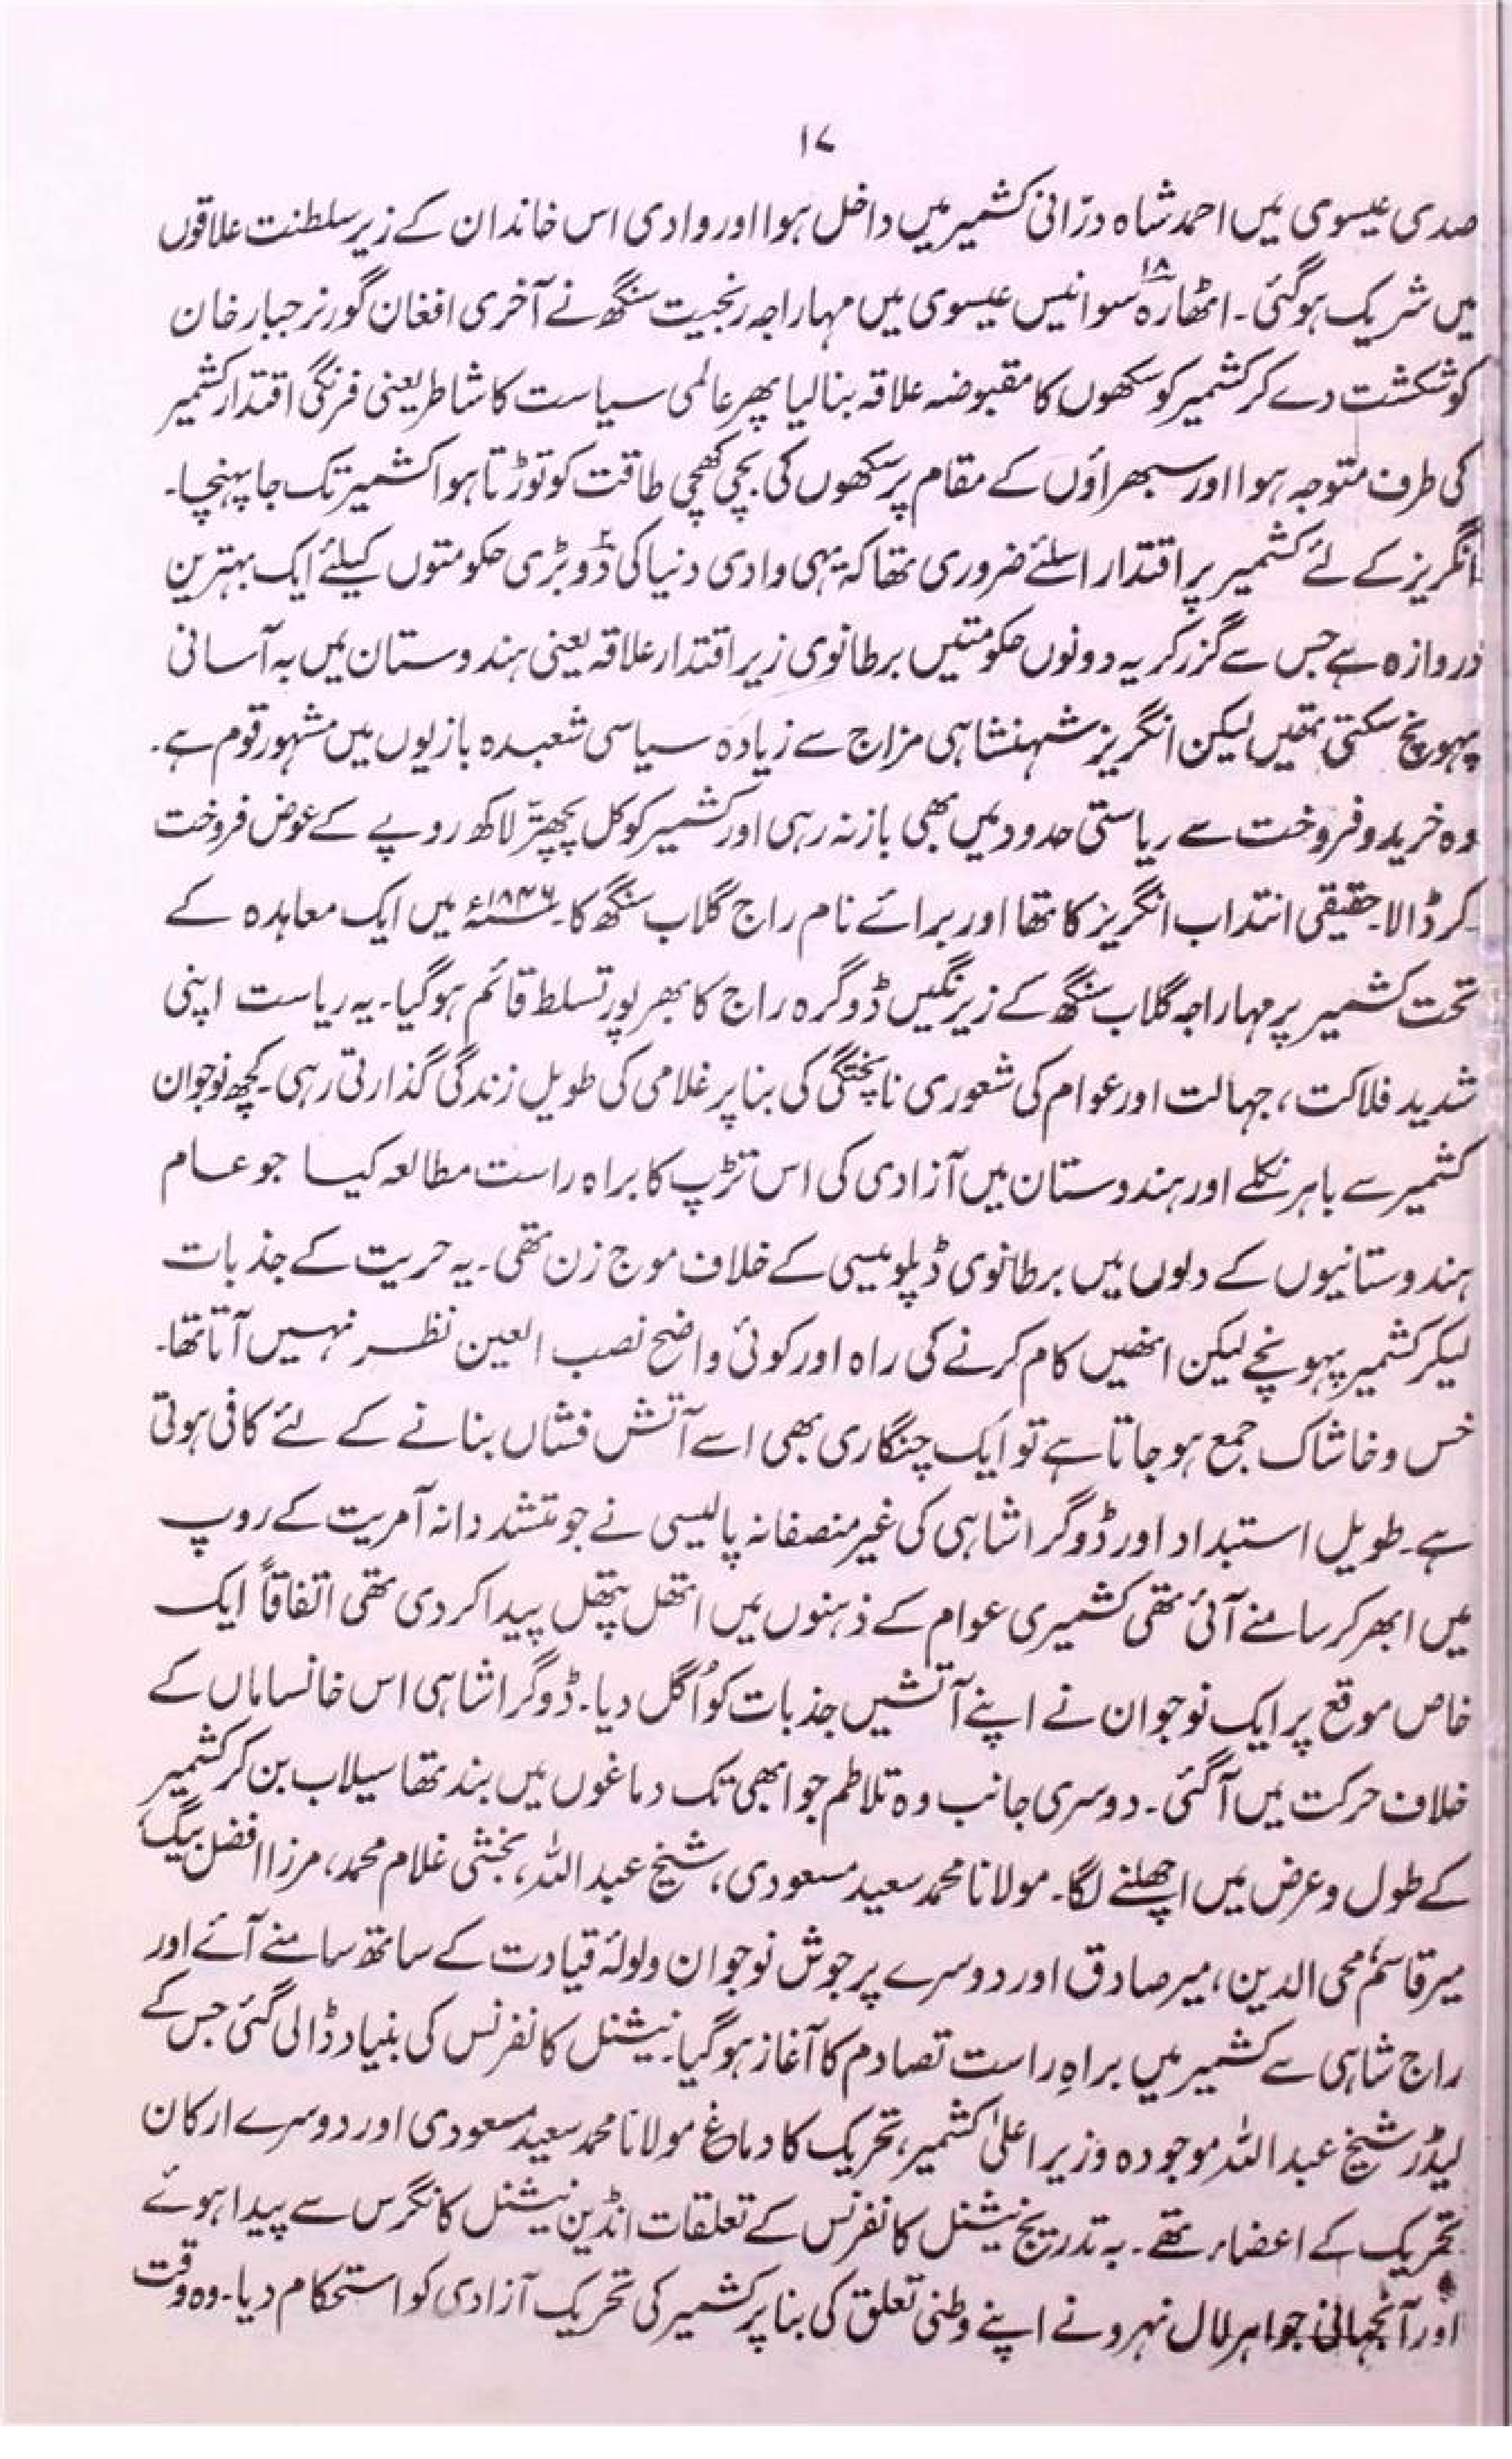 ۱۷
صدی عیسوی میں احمد شاہ درّانی کشمیر میں داخل ہوا اور وادی اس خاندان کے زیر سلطنت علاقوں
میں شریک ہوگئی۔ اٹھارہ ۱۸ سو انیس عیسوی میں مہاراجہ رنجیت سنگھ نے آخری افغان گورنر جبار خان
کو شکشت دے کر کشمیر کو سکھوں کا مقبوضہ علاقہ بنالیا پھر عالمی سیاست کا شاطر یعنی فرنگی اقتدار کشمیر
کی طرف متوجہ ہوا اور سبھراؤں کے مقام پر سکھوں کی بچی کھچی طاقت کو توڑتا ہوا کشمیر تک جا پہنچا۔
انگریز کے لئے کشمیر پر اقتدار اسلئے ضروری تھا کہ یہی وادی دنیا کی دو بڑی حکومتوں کیلئے ایک بہترین
دروازہ ہے جس سے گزر کر یہ دونوں حکومتیں برطانوی زیر اقتدار علاقہ یعنی ہندوستان میں بہ آسانی
پہونچ سکتی تھیں لیکن انگریز شہنشاہی مزاج سے زیادہ سیاسی شعبدہ بازیوں میں مشہور قوم ہے۔
وہ خرید و فروخت سے ریاستی حدود میں بھی باز نہ رہی اور کشمیر کو کل پچھتّر لاکھ روپے کے عوض فروخت
کر ڈالا۔ حقیقی انتداب انگریز کا تھا اور برائے نام راج گلاب سنگھ کا۔ ۱۸۴۶ء میں ایک معاہدہ کے
تحت کشمیر پر مہاراجہ گلاب سنگھ کے زیر نگیں ڈوگرہ راج کا بھرپور تسلط قائم ہوگیا۔ یہ ریاست اپنی
شدید فلاکت، جہالت اور عوام کی شعوری ناپختگی کی بنا پر غلامی کی طویل زندگی گذارتی رہی۔ کچھ نوجوان
کشمیر سے باہر نکلے اور ہندوستان میں آزادی کی اس تڑپ کا براہ راست مطالعہ کیا جو عام
ہندوستانیوں کے دلوں میں برطانوی ڈپلومیسی کے خلاف موج زن تھی۔ یہ حریت کے جذبات
لیکر کشمیر پہونچے لیکن انھیں کام کرنے کی راہ اور کوئی واضح نصب العین نظر نہیں آتا تھا۔
خس و خاشاک جمع ہو جاتا ہے تو ایک چنگاری بھی اسے آتش فشاں بنانے کے لئے کافی ہوتی
ہے۔ طویل استبداد اور ڈوگرا شاہی کی غیر منصفانہ پالیسی نے جو متشددانہ آمریت کے روپ
میں ابھر کر سامنے آئی تھی کشمیری عوام کے ذہنوں میں اتھل پتھل پیدا کردی تھی اتفاقاً ایک
خاص موقع پر ایک نوجوان نے اپنے آتشیں جذبات کو اُگل دیا۔ ڈوگرا شاہی اس خانساماں کے
خلاف حرکت میں آگئی۔ دوسری جانب وہ تلاطم جو ابھی تک دماغوں میں بند تھا سیلاب بن کر کشمیر
کے طول و عرض میں اچھلنے لگا۔ مولانا محمد سعید مسعودی، شیخ عبداللہ، بخشی غلام محمد، مرزا افضل بیگ،
میر قاسم، محی الدین، میر صادق اور دوسرے پر جوش نوجوان ولولۂ قیادت کے ساتھ سامنے آئے اور
راج شاہی سے کشمیر میں براہِ راست تصادم کا آغاز ہوگیا۔ نیشنل کانفرنس کی بنیاد ڈالی گئی جس کے
لیڈر شیخ عبداللہ موجودہ وزیر اعلیٰ کشمیر، تحریک کا دماغ مولانا محمد سعید مسعودی اور دوسرے ارکان
تحریک کے اعضاء تھے۔ بہ تدریج نیشنل کانفرنس کے تعلقات انڈین نیشنل کانگرس سے پیدا ہوئے
اور آنجہانی جواہر لال نہرو نے اپنے وطنی تعلق کی بنا پر کشمیر کی تحریک آزادی کو استحکام دیا۔ وہ وقت